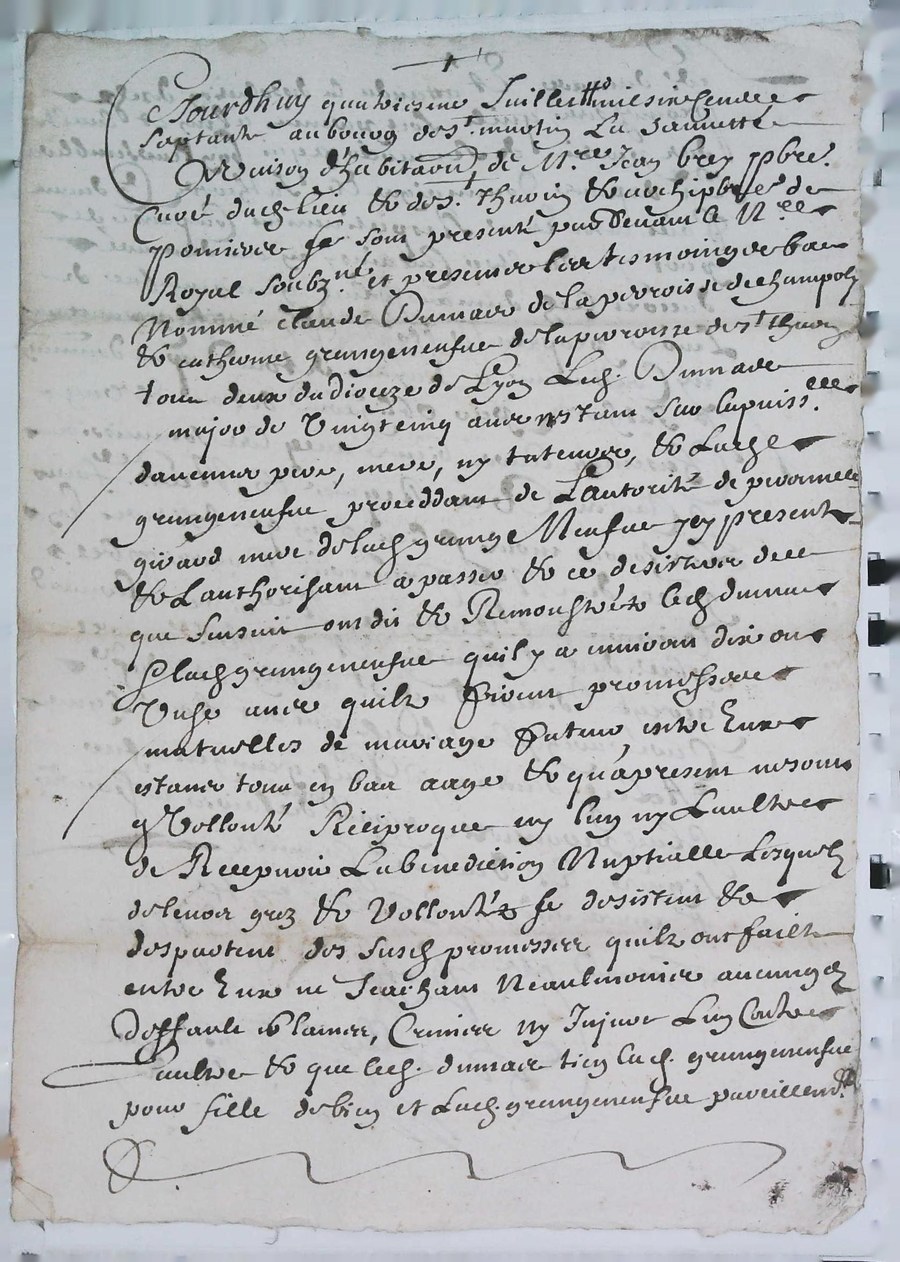 Ce Jourdhuy quatriesme Juillet mil six cendz
septante au bourg de St. martin La Sauvetté
Maison d'habitaōn, de Mre. Jean brey pbre.
Curé dud. lieu & de St. Thurin & archipbre de
se sont presenté par devant le Nre
Royal Soubzné. et presence les tesmoingz bas
Nommé claude Dumas de la parroisse de champoly
& catherine grangeneufue de la parroisse de St. thurin
tous deux du dioceze de Lyon Led. Dumas
major de Vingt cinq ans nestant sur la puiss.ce
daucuns pere, mere, ny tuteurs, & Lad.
grangeneufue proceddant de L'autorité de peronnelle
girard mere de lad. grange Neufue jcy present
& L'authorisant a passer & ce desister de ce
que sensuit ont dit & Remonstréz led. dumas
& lad. grangeneufue quil y a environ dix ou
Unse ans quilz firent promesses
mutuelles de mariage futur, entre Eux
estans tous en bas aage & qu'apresent ne sont
en Vollonté Réciproque ny lun ny Laultre
de Recepvoir La benediction Nuptialle Lesquelz
de leurs grez & Vollontéz se desistent &
despartent des susd. promesses quilz ont faitt
entre Eux ne Scachant Neaulmoins aucungz
deffault blasmes, Crimes ny Injure Lun Contre
Laultre & que led. dumas tien lad. grangeneufue
pour fille de bien et Lad. grangeneufue pareillemt.